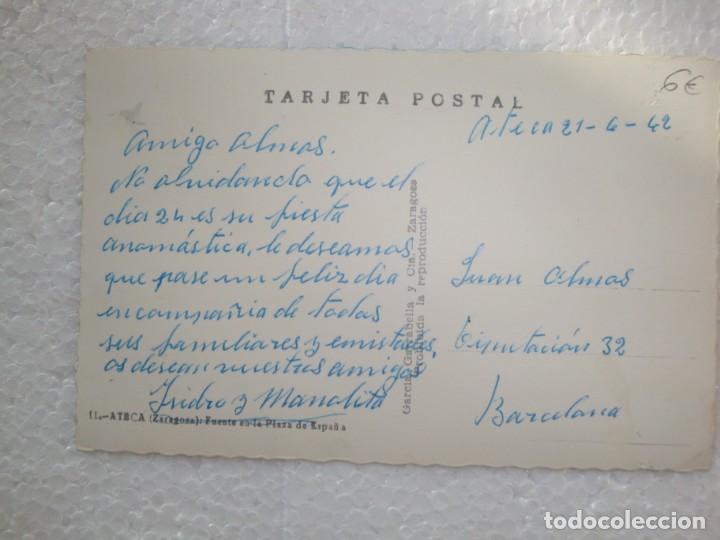 6€
TARJETA POSTAL
Ateca 21-6-42
Amigo Almos.
No olvidando que el
dia 24 es su fiesta
anomástica, le deseamos
que pase un feliz dia
en compañia de todos
sus familiares y emistades,
os desean vuestros amigos
Isidro y Manolita
11.-ATECA (Zaragoza): Fuente en la Plaza de España
García Garrabella y Cía. Zaragoza
Prohibida la reproducción
Juan Almos
Diputación 32
Barcelona
todocoleccion
todocoleccion.net